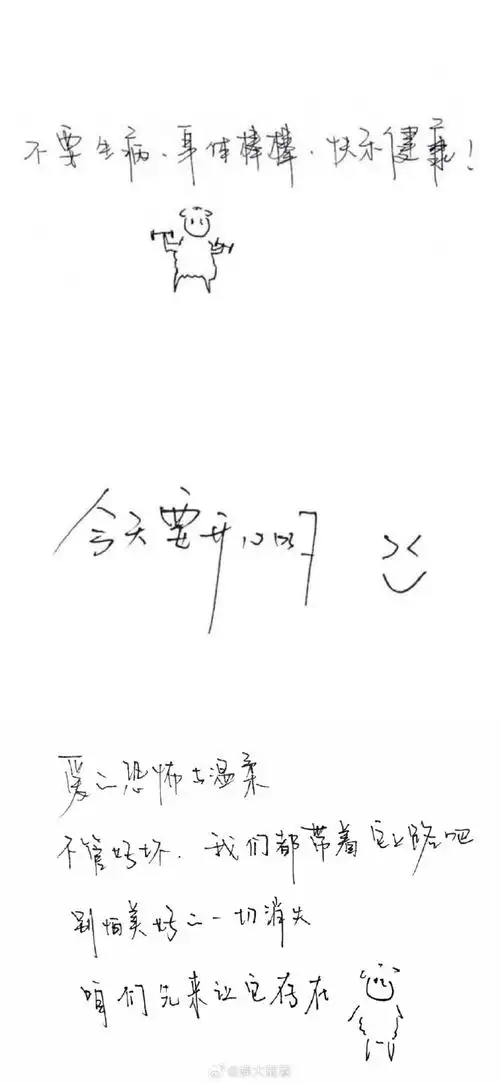 不要生病、身体棒棒、快乐健康！
今天要开心呀
爱之恐怖与温柔
不管好坏，我们都带着它上路吧
别怕美好之一切消失
咱们先来让它存在